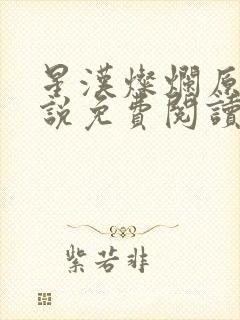 星漢燦爛原
說免費閱讀
紫若非